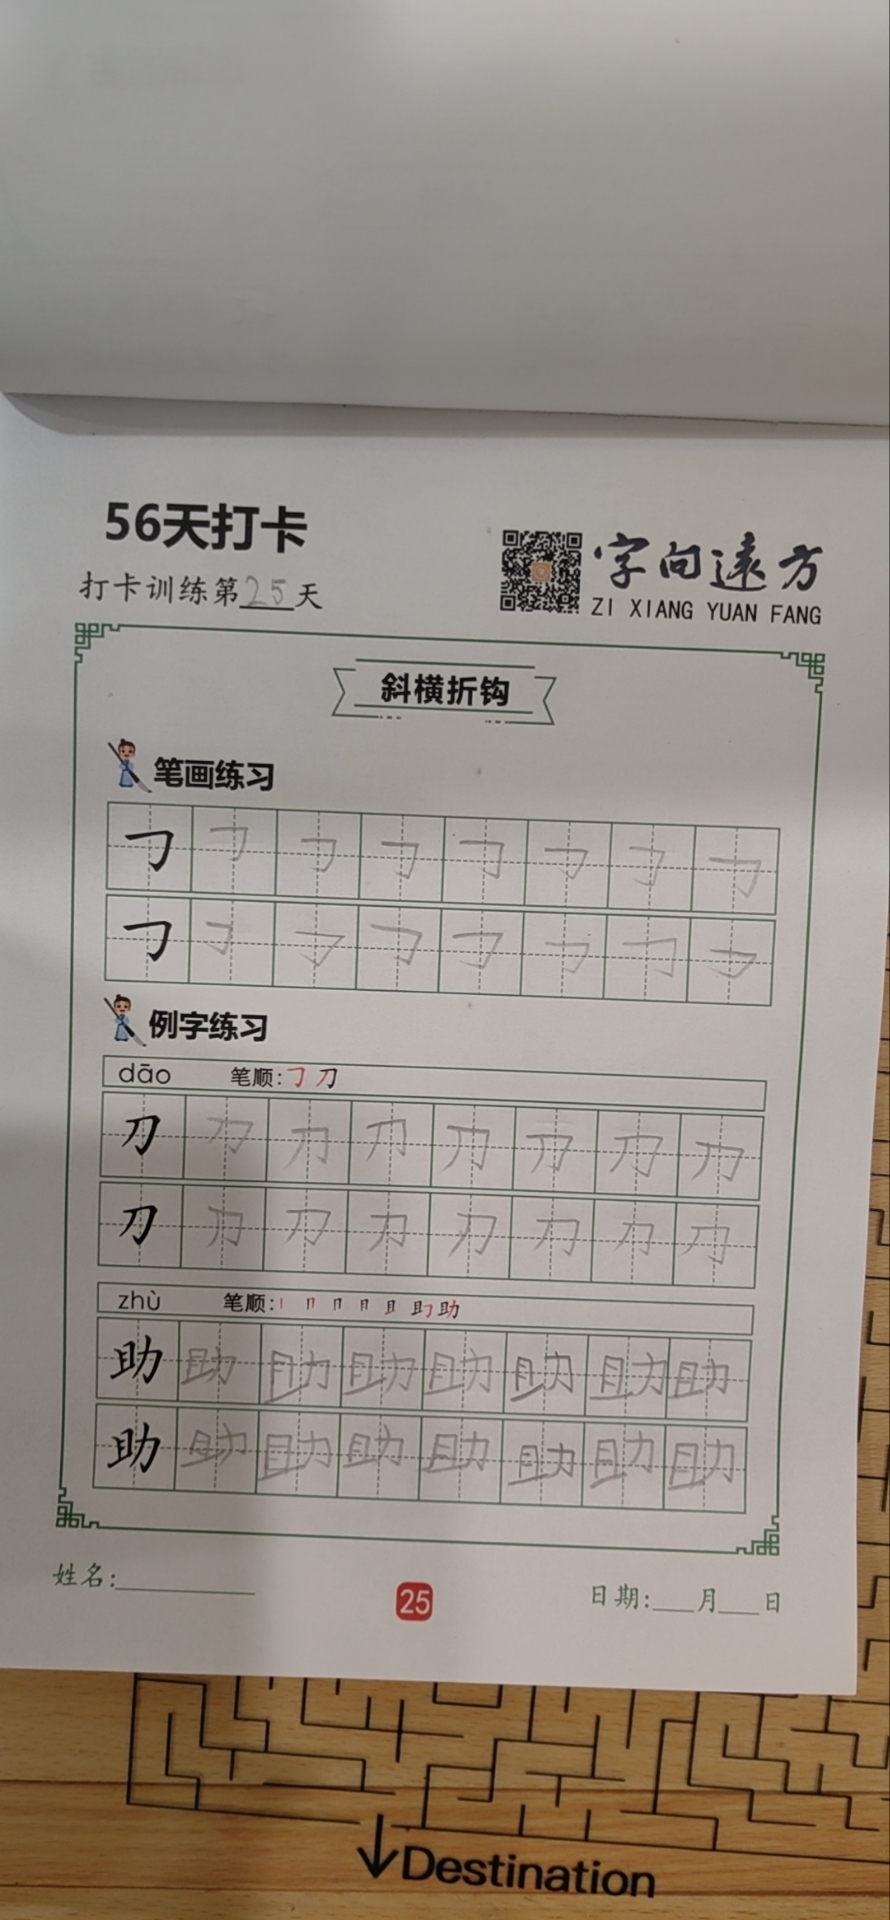 56天打卡
打卡训练第25天
字向遠方
ZI XIANG YUAN FANG
斜横折钩
笔画练习
例字练习
dāo 笔顺: ㇆ 刀
刀 刀 刀 刀 刀 刀 刀 刀
刀 刀 刀 刀 刀 刀 刀 刀
zhù 笔顺: 助
助 助 助 助 助 助 助 助
助 助 助 助 助 助 助 助
姓名:
25
日期:___月___日
Destination